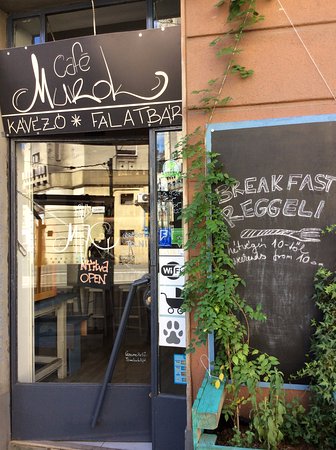 Café
Murok
KÁVÉZÓ * FALATBÁR
NYITVA
OPEN
WiFi
BREAKFAST
REGGELI
hétvégén 10-től
weekends from 10